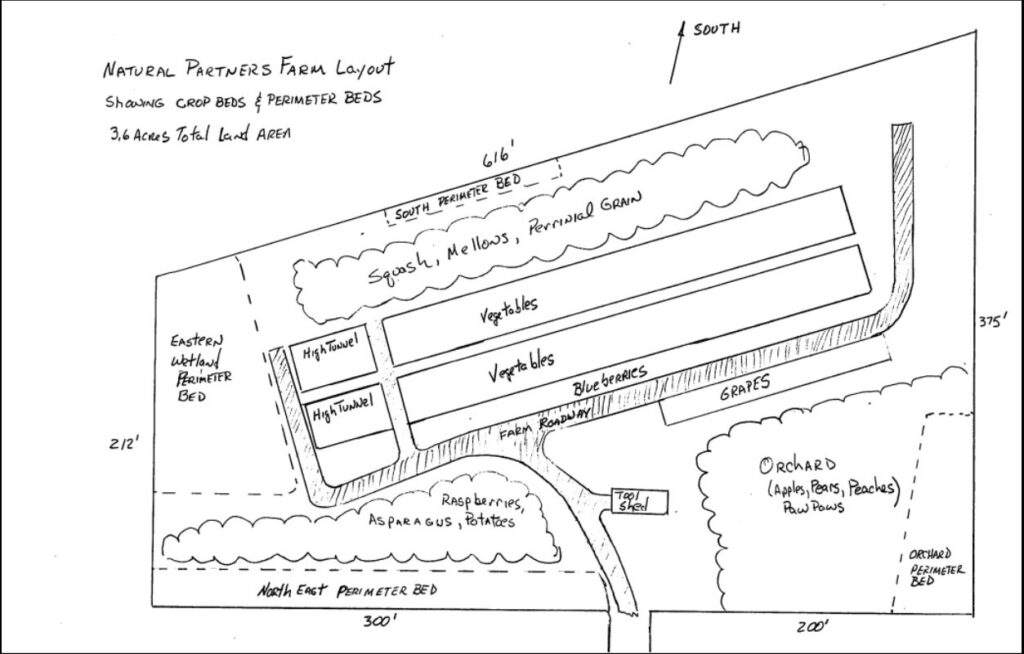 NATURAL PARTNERS FARM LAYOUT
SHOWING CROP BEDS & PERIMETER BEDS
3.6 ACRES TOTAL LAND AREA
SOUTH
616'
SOUTH PERIMETER BED
Squash, Mellows, Perrinial GRAIN
Vegetables
High Tunnel
EASTERN
Wetland
PERIMETER
BED
375'
Vegetables
Blueberries
GRAPES
High Tunnel
FARM ROADWAY
212'
ORCHARD
(Apples, Pears, Peaches)
Paw Paws
Raspberries,
ASPARAGUS, Potatoes
Tool
Shed
ORCHARD
PERIMETER
BED
North East PERIMETER BED
300'
200'